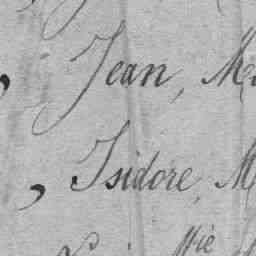 , Jean, M
, Isidore, M